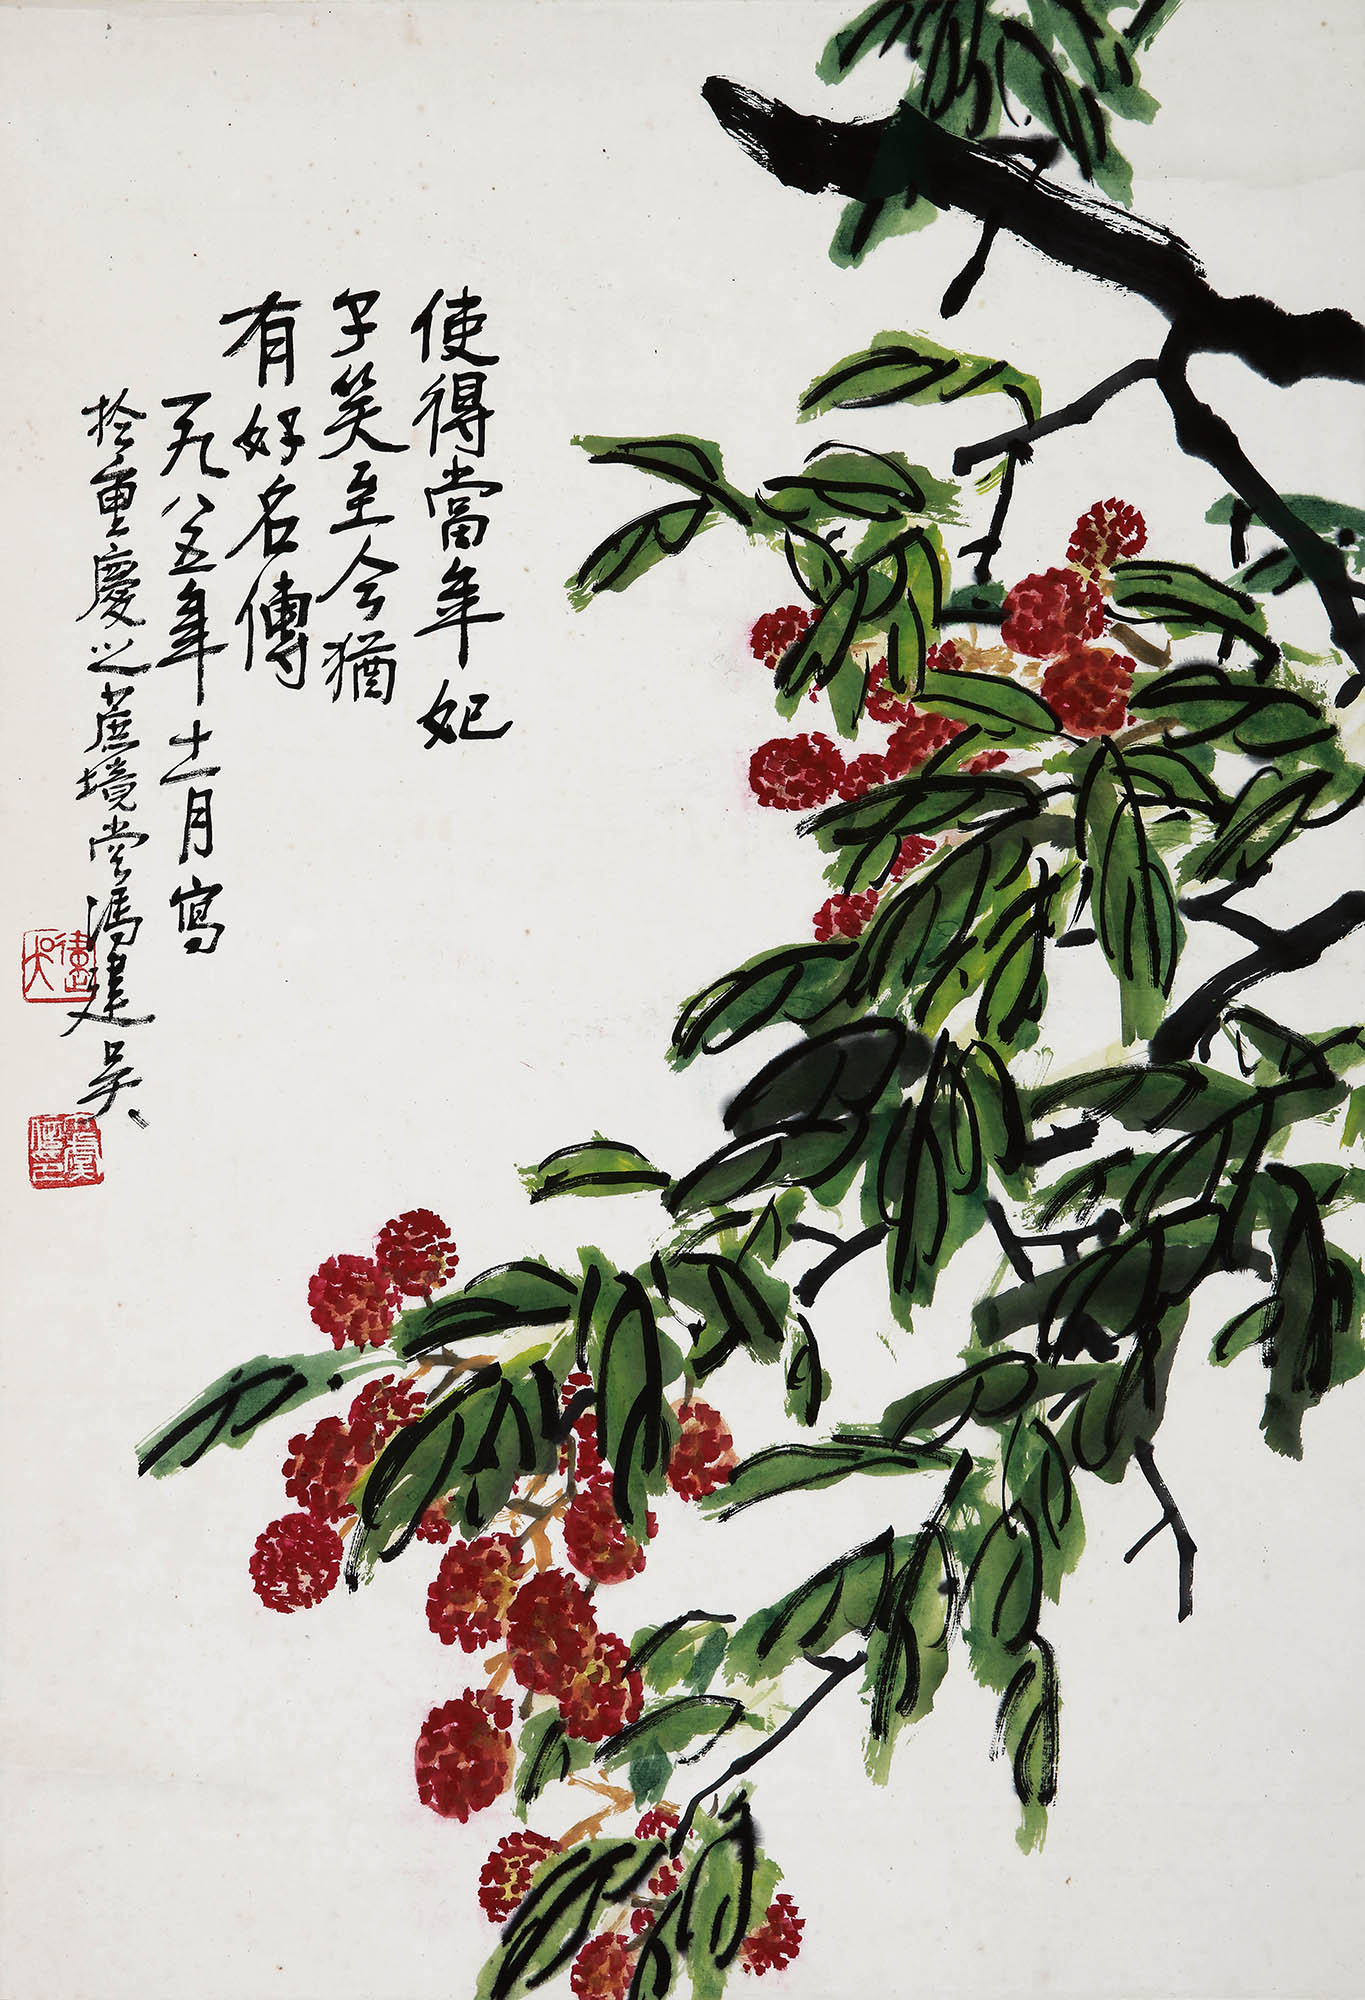 使得當年妃
子笑至今猶
有好名傳
一九八五年十一月寫
於重慶之蔗境堂馮建吳
建吳